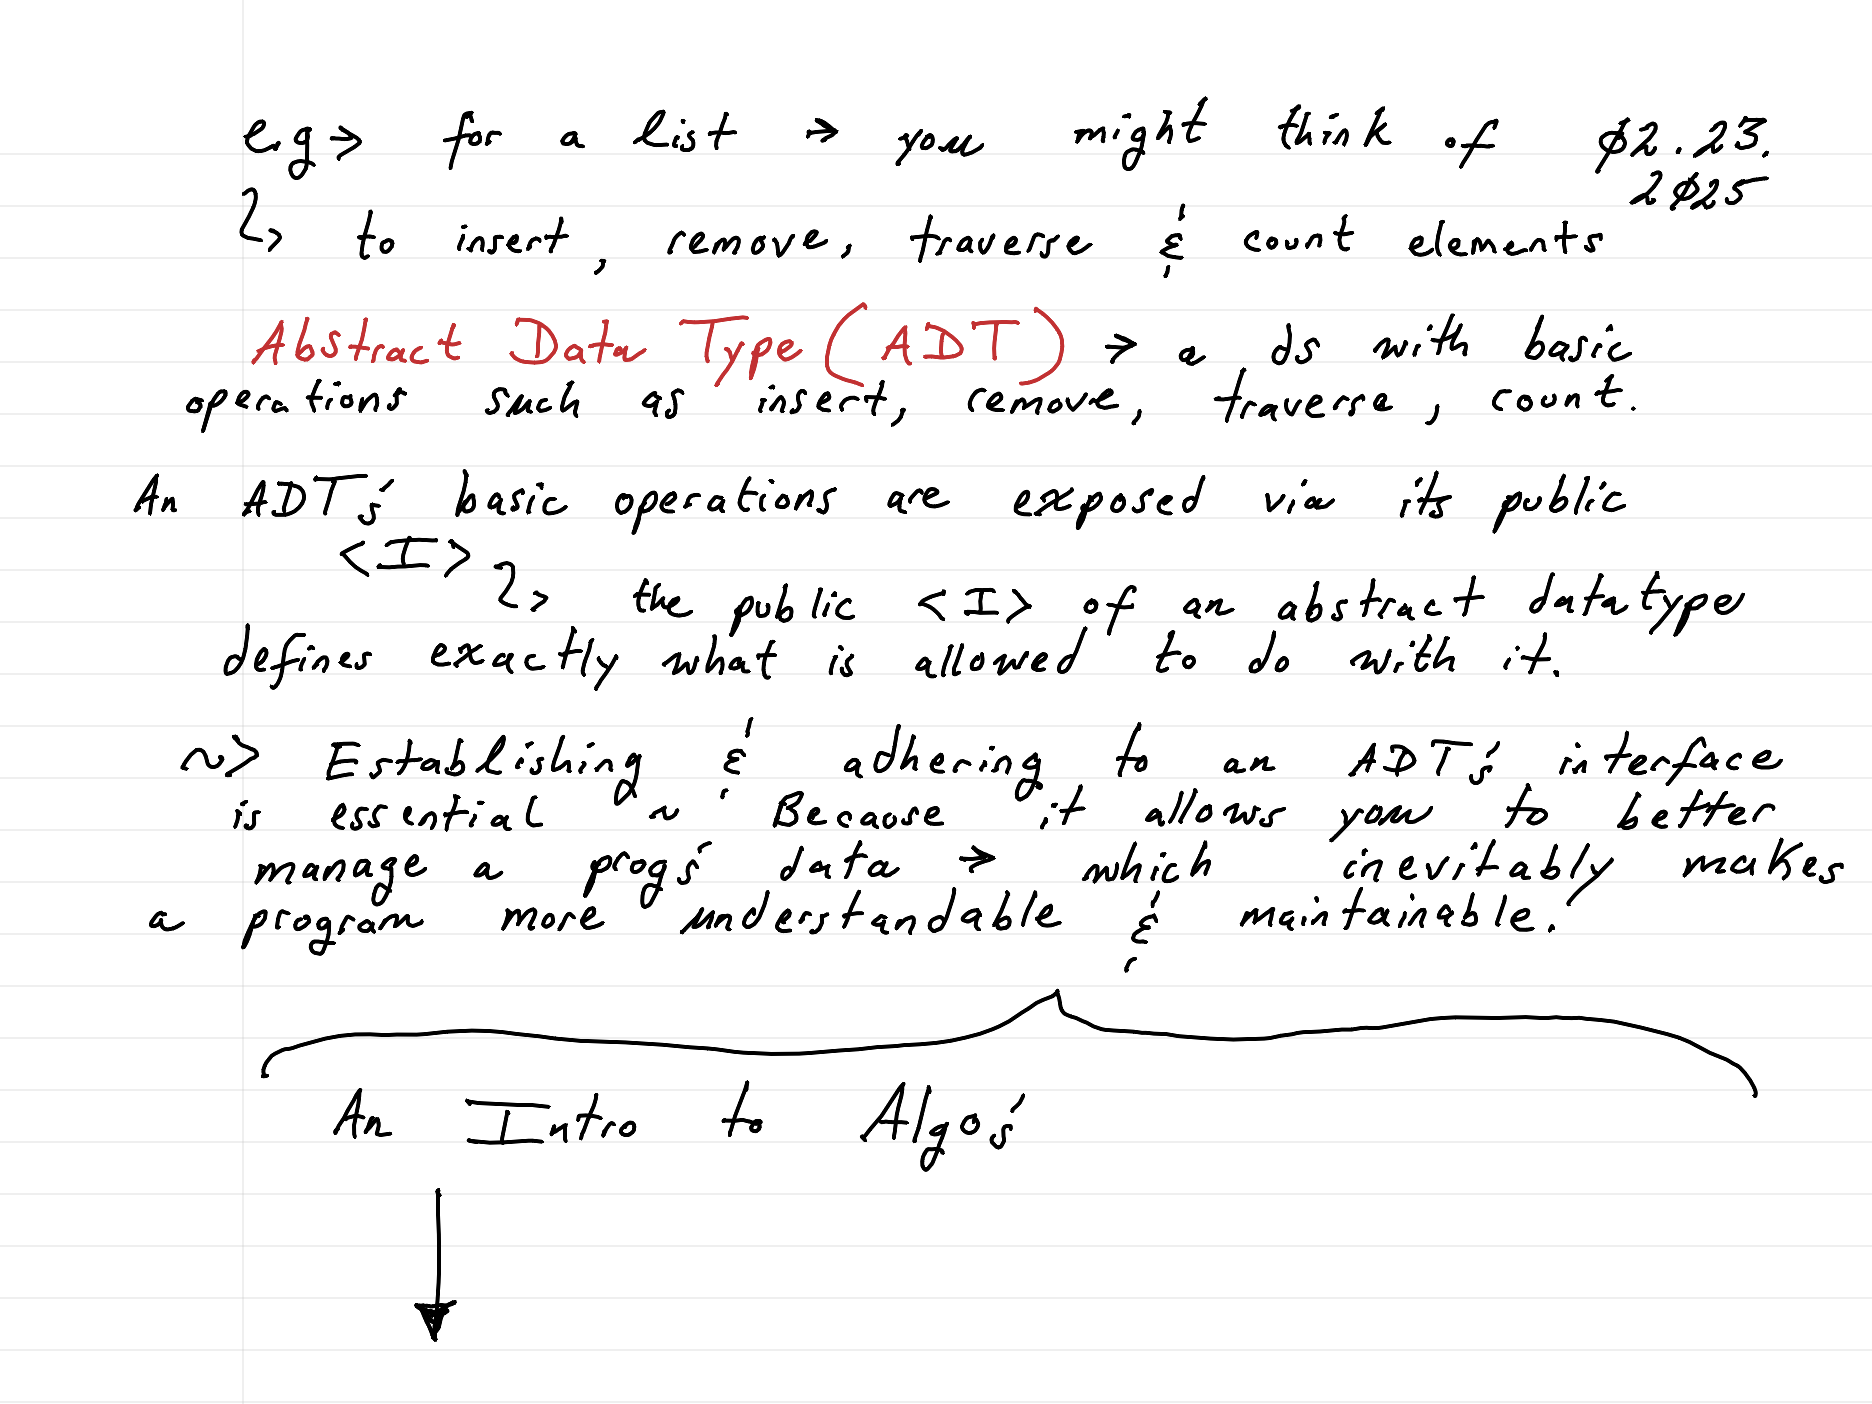 e.g → for a list → you might think of Ø2.23.
2Ø25
↳ to insert, remove, traverse & count elements
Abstract Data Type (ADT) → a ds with basic
operations such as insert, remove, traverse, count.
An ADT's basic operations are exposed via its public
<I>
↳ the public <I> of an abstract data type
defines exactly what is allowed to do with it.
~> Establishing & adhering to an ADT's interface
is essential ~ Because it allows you to better
manage a prog's data → which inevitably makes
a program more understandable & maintainable.
An Intro to Algo's